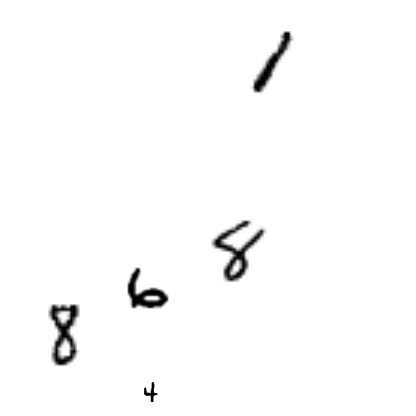 1
8
6
8
4